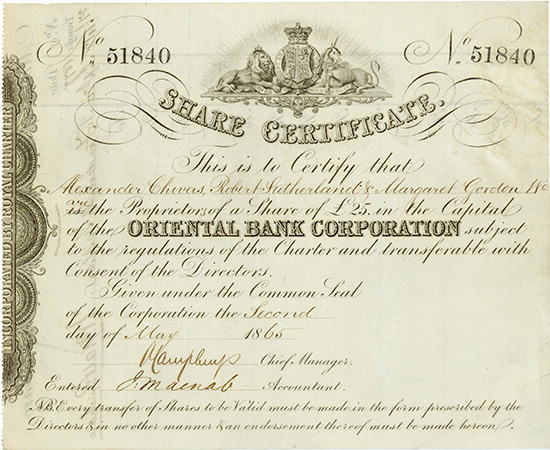 No 51840 No 51840
SHARE CERTIFICATE.
This is to Certify that
Alexander Chivas, Robert Sutherland & Margaret Gordon
are the Proprietors of a Share of £25. in the Capital
of the ORIENTAL BANK CORPORATION subject
to the regulations of the Charter and transferable with
Consent of the Directors.
Given under the Common Seal
of the Corporation the Second
day of May 1865
Chief Manager.
Entered J. Macnab Accountant.
NB. Every transfer of Shares to be Valid must be made in the form prescribed by the
Directors & in no other manner & an endorsement thereof must be made hereon.
INCORPORATED BY ROYAL CHARTER